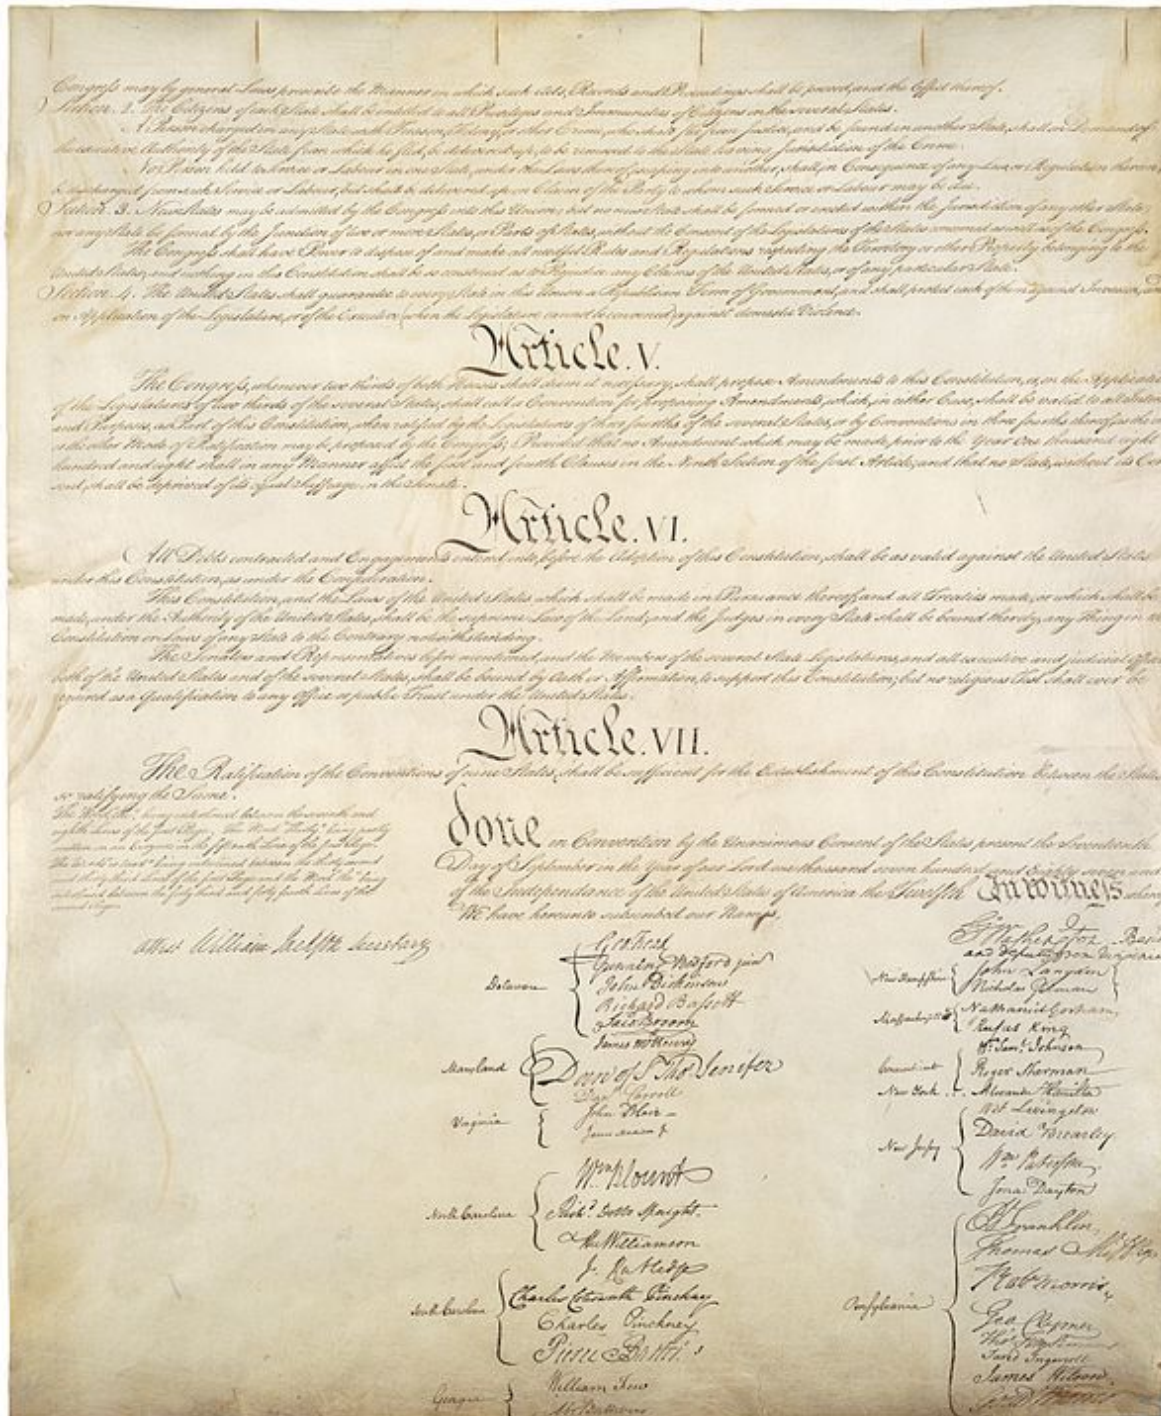 Congress may by general Laws prescribe the Manner in which such Acts, Records and Proceedings shall be proved, and the Effect thereof.
Section. 2. The Citizens of each State shall be entitled to all Privileges and Immunities of Citizens in the several States.
A Person charged in any State with Treason, Felony, or other Crime, who shall flee from Justice, and be found in another State, shall on Demand of
the executive Authority of the State from which he fled, be delivered up, to be removed to the State having Jurisdiction of the Crime.
No Person held to Service or Labour in one State, under the Laws thereof, escaping into another, shall, in Consequence of any Law or Regulation therein,
be discharged from such Service or Labour, but shall be delivered up on Claim of the Party to whom such Service or Labour may be due.
Section. 3. New States may be admitted by the Congress into this Union; but no new State shall be formed or erected within the Jurisdiction of any other State;
nor any State be formed by the Junction of two or more States, or Parts of States, without the Consent of the Legislatures of the States concerned as well as of the Congress.
The Congress shall have Power to dispose of and make all needful Rules and Regulations respecting the Territory or other Property belonging to the
United States; and nothing in this Constitution shall be so construed as to Prejudice any Claims of the United States, or of any particular State.
Section. 4. The United States shall guarantee to every State in this Union a Republican Form of Government, and shall protect each of them against Invasion; and
on Application of the Legislature, or of the Executive (when the Legislature cannot be convened) against domestic Violence.
Article. V.
The Congress, whenever two thirds of both Houses shall deem it necessary, shall propose Amendments to this Constitution, or, on the Applicatio
of the Legislatures of two thirds of the several States, shall call a Convention for proposing Amendments, which, in either Case, shall be valid to all Intents
and Purposes, as Part of this Constitution, when ratified by the Legislatures of three fourths of the several States, or by Conventions in three fourths thereof, as the o
or the other Mode of Ratification may be proposed by the Congress; Provided that no Amendment which may be made prior to the Year One thousand eight
hundred and eight shall in any Manner affect the first and fourth Clauses in the Ninth Section of the first Article; and that no State, without its Con
sent, shall be deprived of its equal Suffrage in the Senate.
Article. VI.
All Debts contracted and Engagements entered into, before the Adoption of this Constitution, shall be as valid against the United States
under this Constitution, as under the Confederation.
This Constitution, and the Laws of the United States which shall be made in Pursuance thereof; and all Treaties made, or which shall be
made, under the Authority of the United States, shall be the supreme Law of the Land; and the Judges in every State shall be bound thereby, any Thing in
Constitution or Laws of any State to the Contrary notwithstanding.
The Senators and Representatives before mentioned, and the Members of the several State Legislatures, and all executive and judicial Office
both of the United States and of the several States, shall be bound by Oath or Affirmation, to support this Constitution; but no religious Test shall ever be
required as a Qualification to any Office or public Trust under the United States.
Article. VII.
The Ratification of the Conventions of nine States, shall be sufficient for the Establishment of this Constitution between the States
so ratifying the Same.
The Word, "the," being interlined between the seventh and
eighth Lines of the first Page, The Word "Thirty" being partly
written on an Erazure in the fifteenth Line of the first Page,
The Words "is tried" being interlined between the thirty second
and thirty third Lines of the first Page and the Word "the" being
interlined between the forty third and forty fourth Lines of the
second Page.
done in Convention by the Unanimous Consent of the States present the Seventeenth
Day of September in the Year of our Lord one thousand seven hundred and Eighty seven and
of the Independance of the United States of America the Twelfth In Witness whereof
We have hereunto subscribed our Names,
Attest William Jackson Secretary
Go. Washington
and deputy from Virginia
Delaware
Geo: Read
Gunning Bedford jun
John Dickinson
Richard Bassett
Jaco: Broom
Maryland
James McHenry
Dan of St Thos. Jenifer
Danl Carroll
Virginia
John Blair—
James Madison Jr.
North Carolina
Wm Blount
Richd. Dobbs Spaight.
Hu Williamson
South Carolina
J. Rutledge
Charles Cotesworth Pinckney
Charles Pinckney
Pierce Butler.
Georgia
William Few
Abr Baldwin
New Hampshire
John Langdon
Nicholas Gilman
Massachusetts
Nathaniel Gorham
Rufus King
Connecticut
Wm. Saml. Johnson
Roger Sherman
New York . . .
Alexander Hamilton
New Jersey
Wil: Livingston
David Brearley
Wm. Paterson.
Jona: Dayton
Pensylvania
B Franklin
Thomas Mifflin
Robt Morris
Geo. Clymer
Thos. FitzSimons
Jared Ingersoll
James Wilson.
Gouv Morris